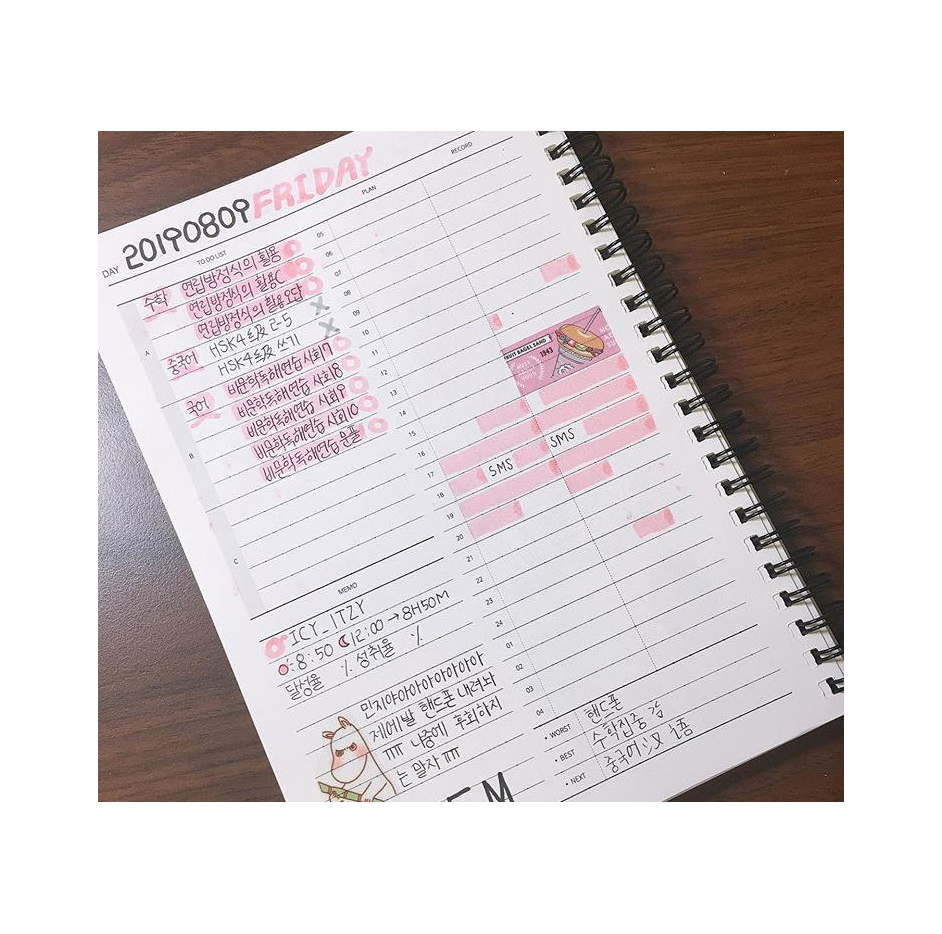 DAY 20190809 FRIDAY
TO DO LIST
PLAN
RECORD
수학 연립방정식의 활용
연립방정식의 활용C
연립방정식의 활용오답
A
중국어 HSK4级 2-5
HSK4级 쓰기
국어 비문학독해연습 사회7
비문학독해연습 사회8
비문학독해연습 사회9
B
비문학독해연습 사회10
비문학독해연습 문풀
C
05
06
07
08
09
10
11
12
13
14
15
16
17
18
19
20
21
22
23
24
01
02
03
04
FRUIT BAGEL SAND
1943
SMS
SMS
MEMO
ICY_ITZY
8:50 12:00→8H50M
달성율 % 성취율 %
민지야아아아아아아아
제에발 핸드폰 내려놔
ㅠㅠ 나중에 후회하지
는 말자 ㅠㅠ
WORST 핸드폰
BEST 수학집중
NEXT 중국어